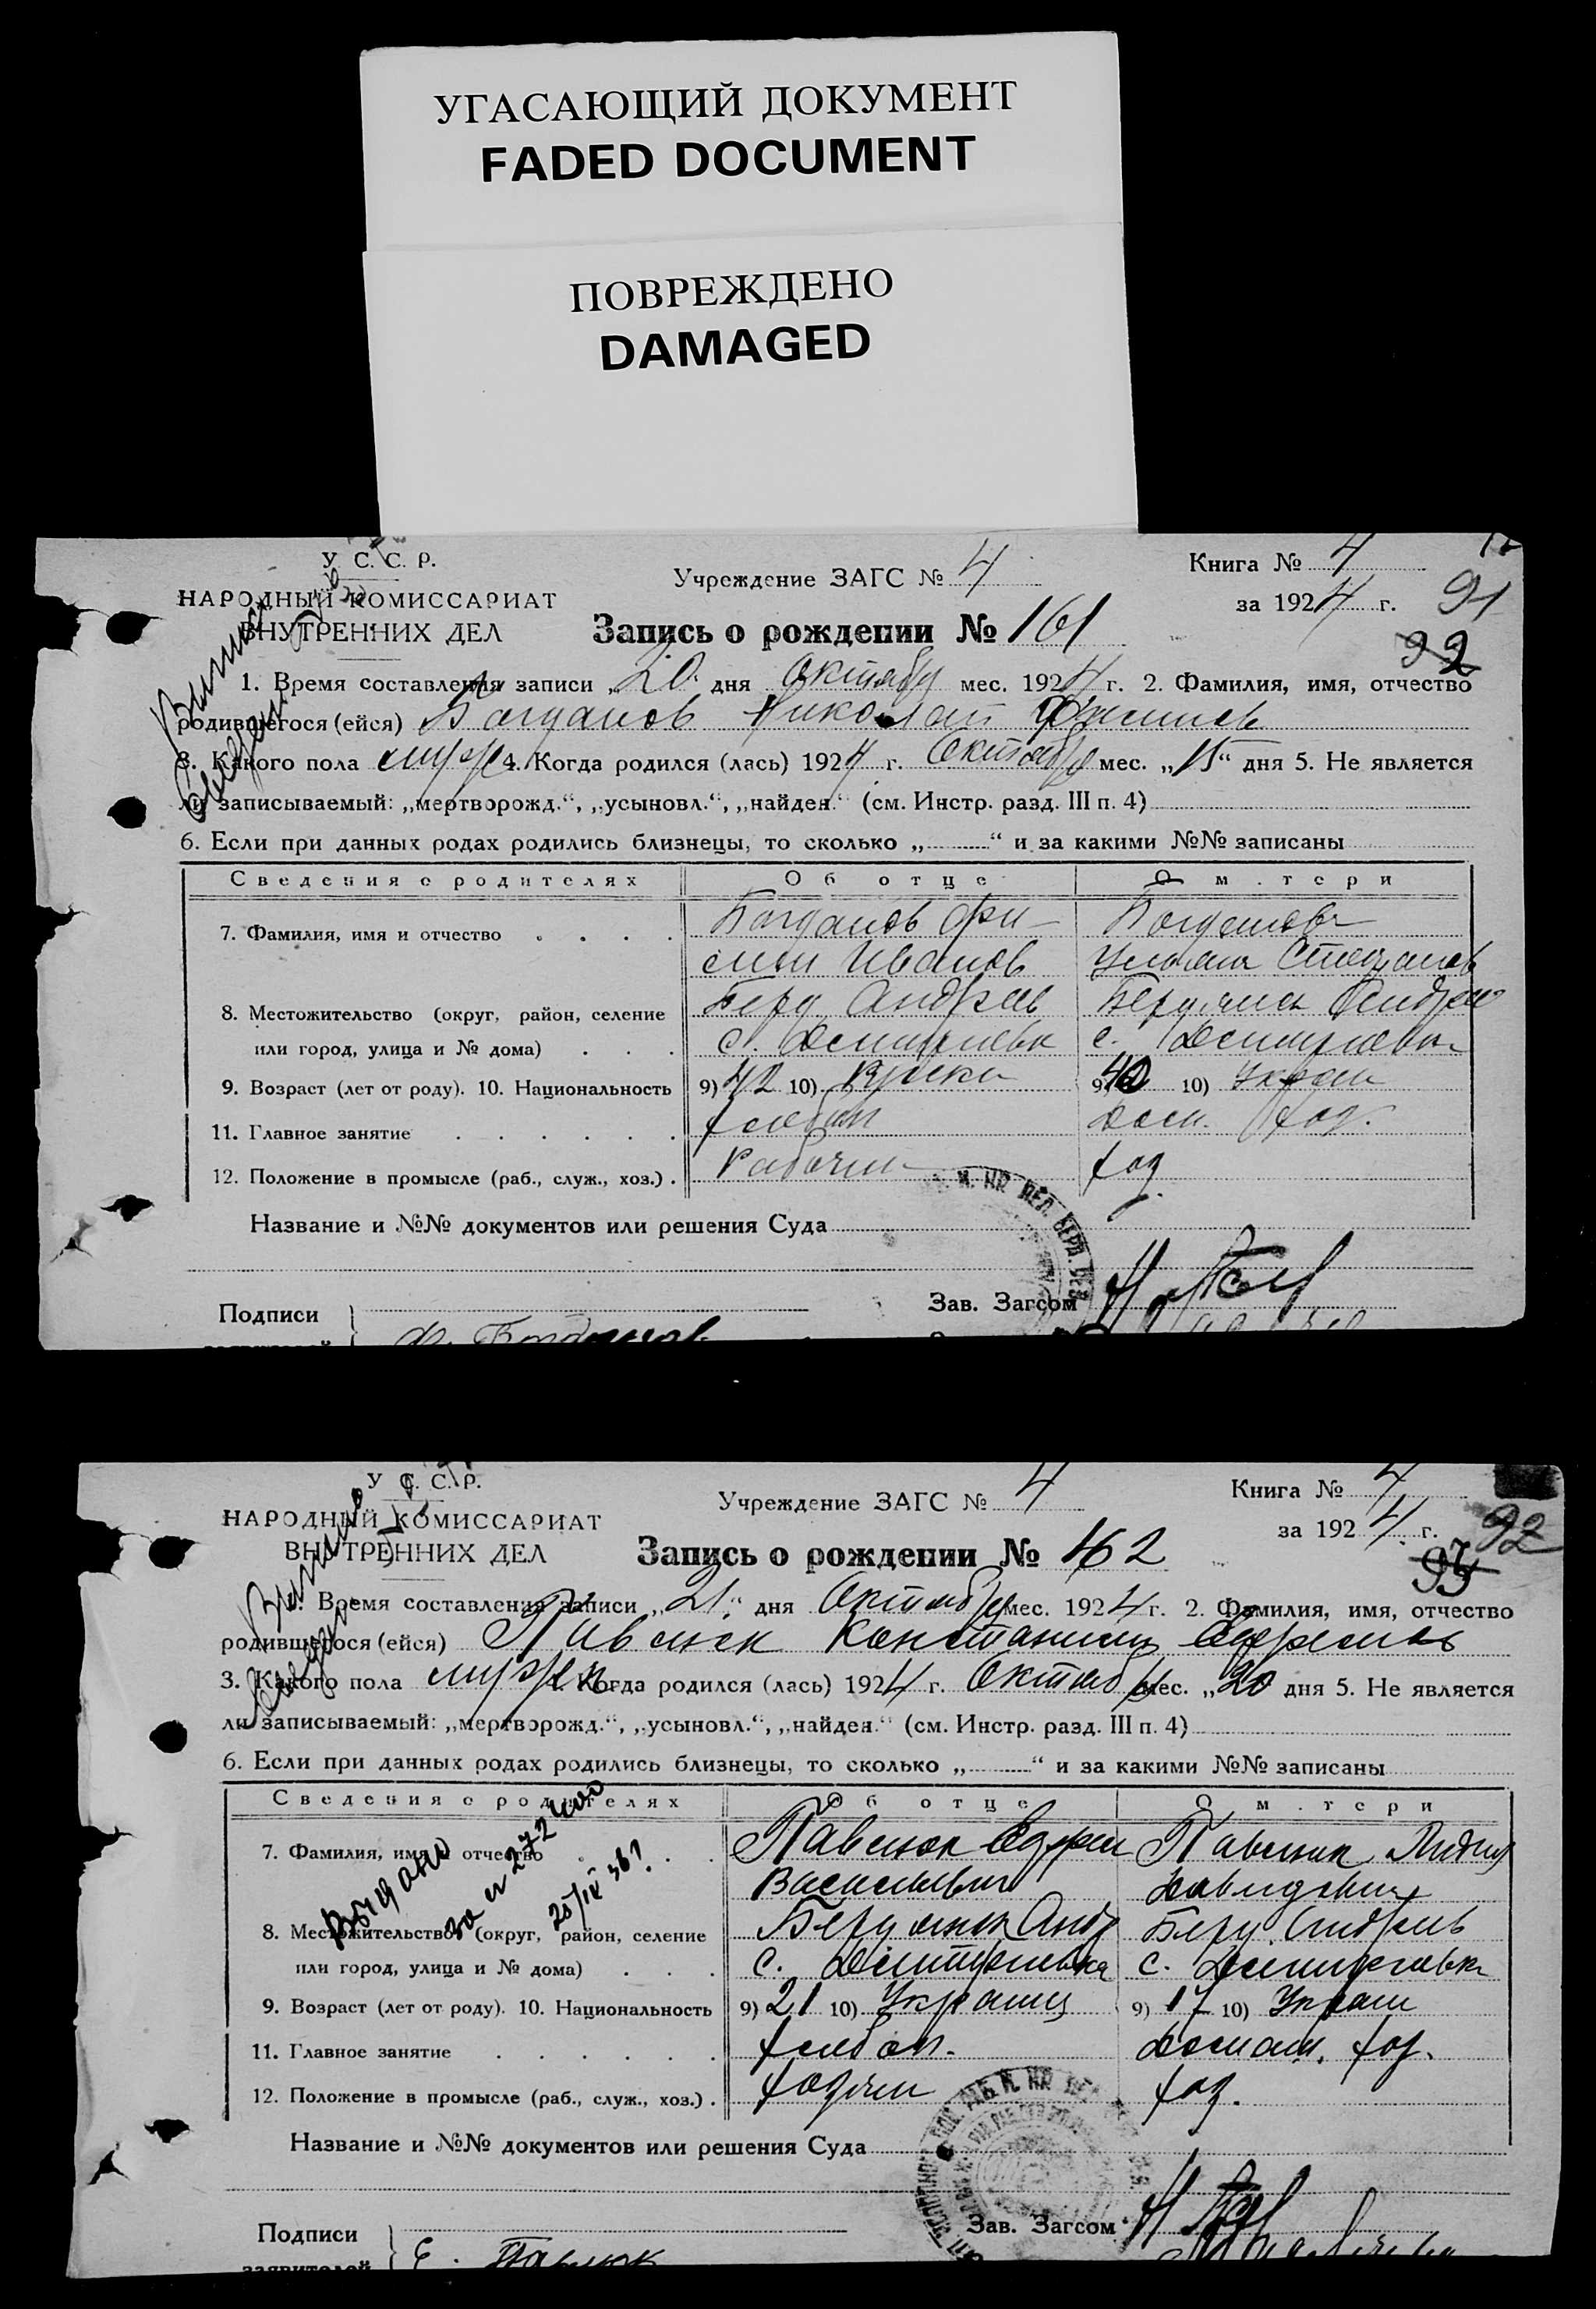 УГАСАЮЩИЙ ДОКУМЕНТ
FADED DOCUMENT
ПОВРЕЖДЕНО
DAMAGED
У С. С. Р.
НАРОДНЫЙ КОМИССАРИАТ
ВНУТРЕННИХ ДЕЛ
Учреждение ЗАГС № 4
Книга № 4
за 1924 г. 91
92
Запись о рождении № 161
1. Время составления записи „20" дня Октября мес. 1924 г. 2. Фамилия, имя, отчество
родившегося (ейся) Богданов Николай
3. Какого пола муж 4. Когда родился (лась) 1924 г. Октября мес. „15" дня 5. Не является
ли записываемый: „мертворожд.", „усыновл.", „найден." (см. Инстр. разд. III п. 4)
6. Если при данных родах родились близнецы, то сколько „ " и за какими №№ записаны
Сведения о родителях Об отце О матери
7. Фамилия, имя и отчество Богданов Фи- Богданова
Иванов Степанов
8. Местожительство (округ, район, селение Берд Андреев Бердянск Андреев
или город, улица и № дома) с. Дмитриевк с. Дмитриевка
9. Возраст (лет от роду). 10. Национальность 9) 42 10) Русски 9) 40 10) Украин
11. Главное занятие хлебоп Дом. хоз.
12. Положение в промысле (раб., служ., хоз.) Рабочий хоз
Название и №№ документов или решения Суда
Подписи
Зав. Загсом
Ф. Богданов
У С. С. Р.
НАРОДНЫЙ КОМИССАРИАТ
ВНУТРЕННИХ ДЕЛ
Учреждение ЗАГС № 4
Книга № 4
за 1924 г. 92
93
Запись о рождении № 162
1. Время составления записи „21" дня Октября мес. 1924 г. 2. Фамилия, имя, отчество
родившегося (ейся) Павлюк Константин Ефремов
3. Какого пола мужск 4. Когда родился (лась) 1924 г. Октября мес. „20 дня 5. Не является
ли записываемый: „мертворожд.", „усыновл.", „найден." (см. Инстр. разд. III п. 4)
6. Если при данных родах родились близнецы, то сколько „ " и за какими №№ записаны
Сведения о родителях Об отце О матери
7. Фамилия, имя и отчество Павлюк Ефрем Павлюк Лидия
Васильевич Давидовна
Выдано
за № 272
25/IX 36 г.
8. Местожительство (округ, район, селение Бердянск Андр Берд. Андреев
или город, улица и № дома) с. Дмитриевка с. Дмитриевка
9. Возраст (лет от роду). 10. Национальность 9) 21 10) Украинц 9) 17 10) Украин
11. Главное занятие хлебоп. Домаш. хоз.
12. Положение в промысле (раб., служ., хоз.) хозяин хоз.
Название и №№ документов или решения Суда
Подписи
Зав. Загсом
заявителей Е. Павлюк